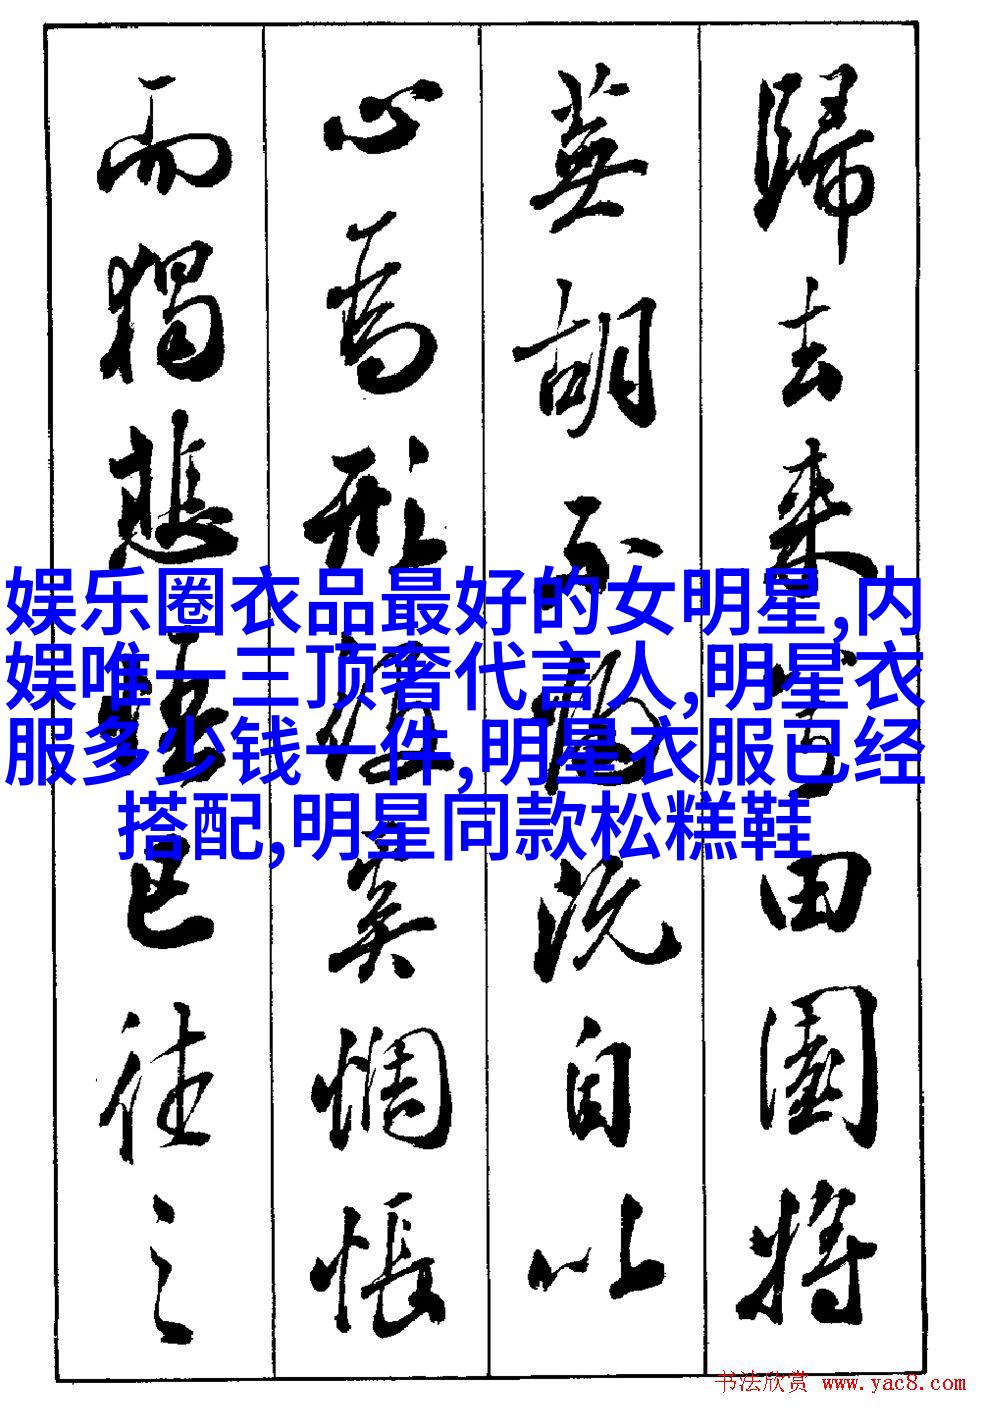 歸去来兮田園将
蕪胡不既自以
心為形役奚惆悵
而獨悲已往之
娱乐圈衣品最好的女明星,内
娱唯一三顶奢代言人,明星衣
服多少钱一件,明星衣服已经
搭配,明星同款松糕鞋
书法欣赏 www.yac8.com